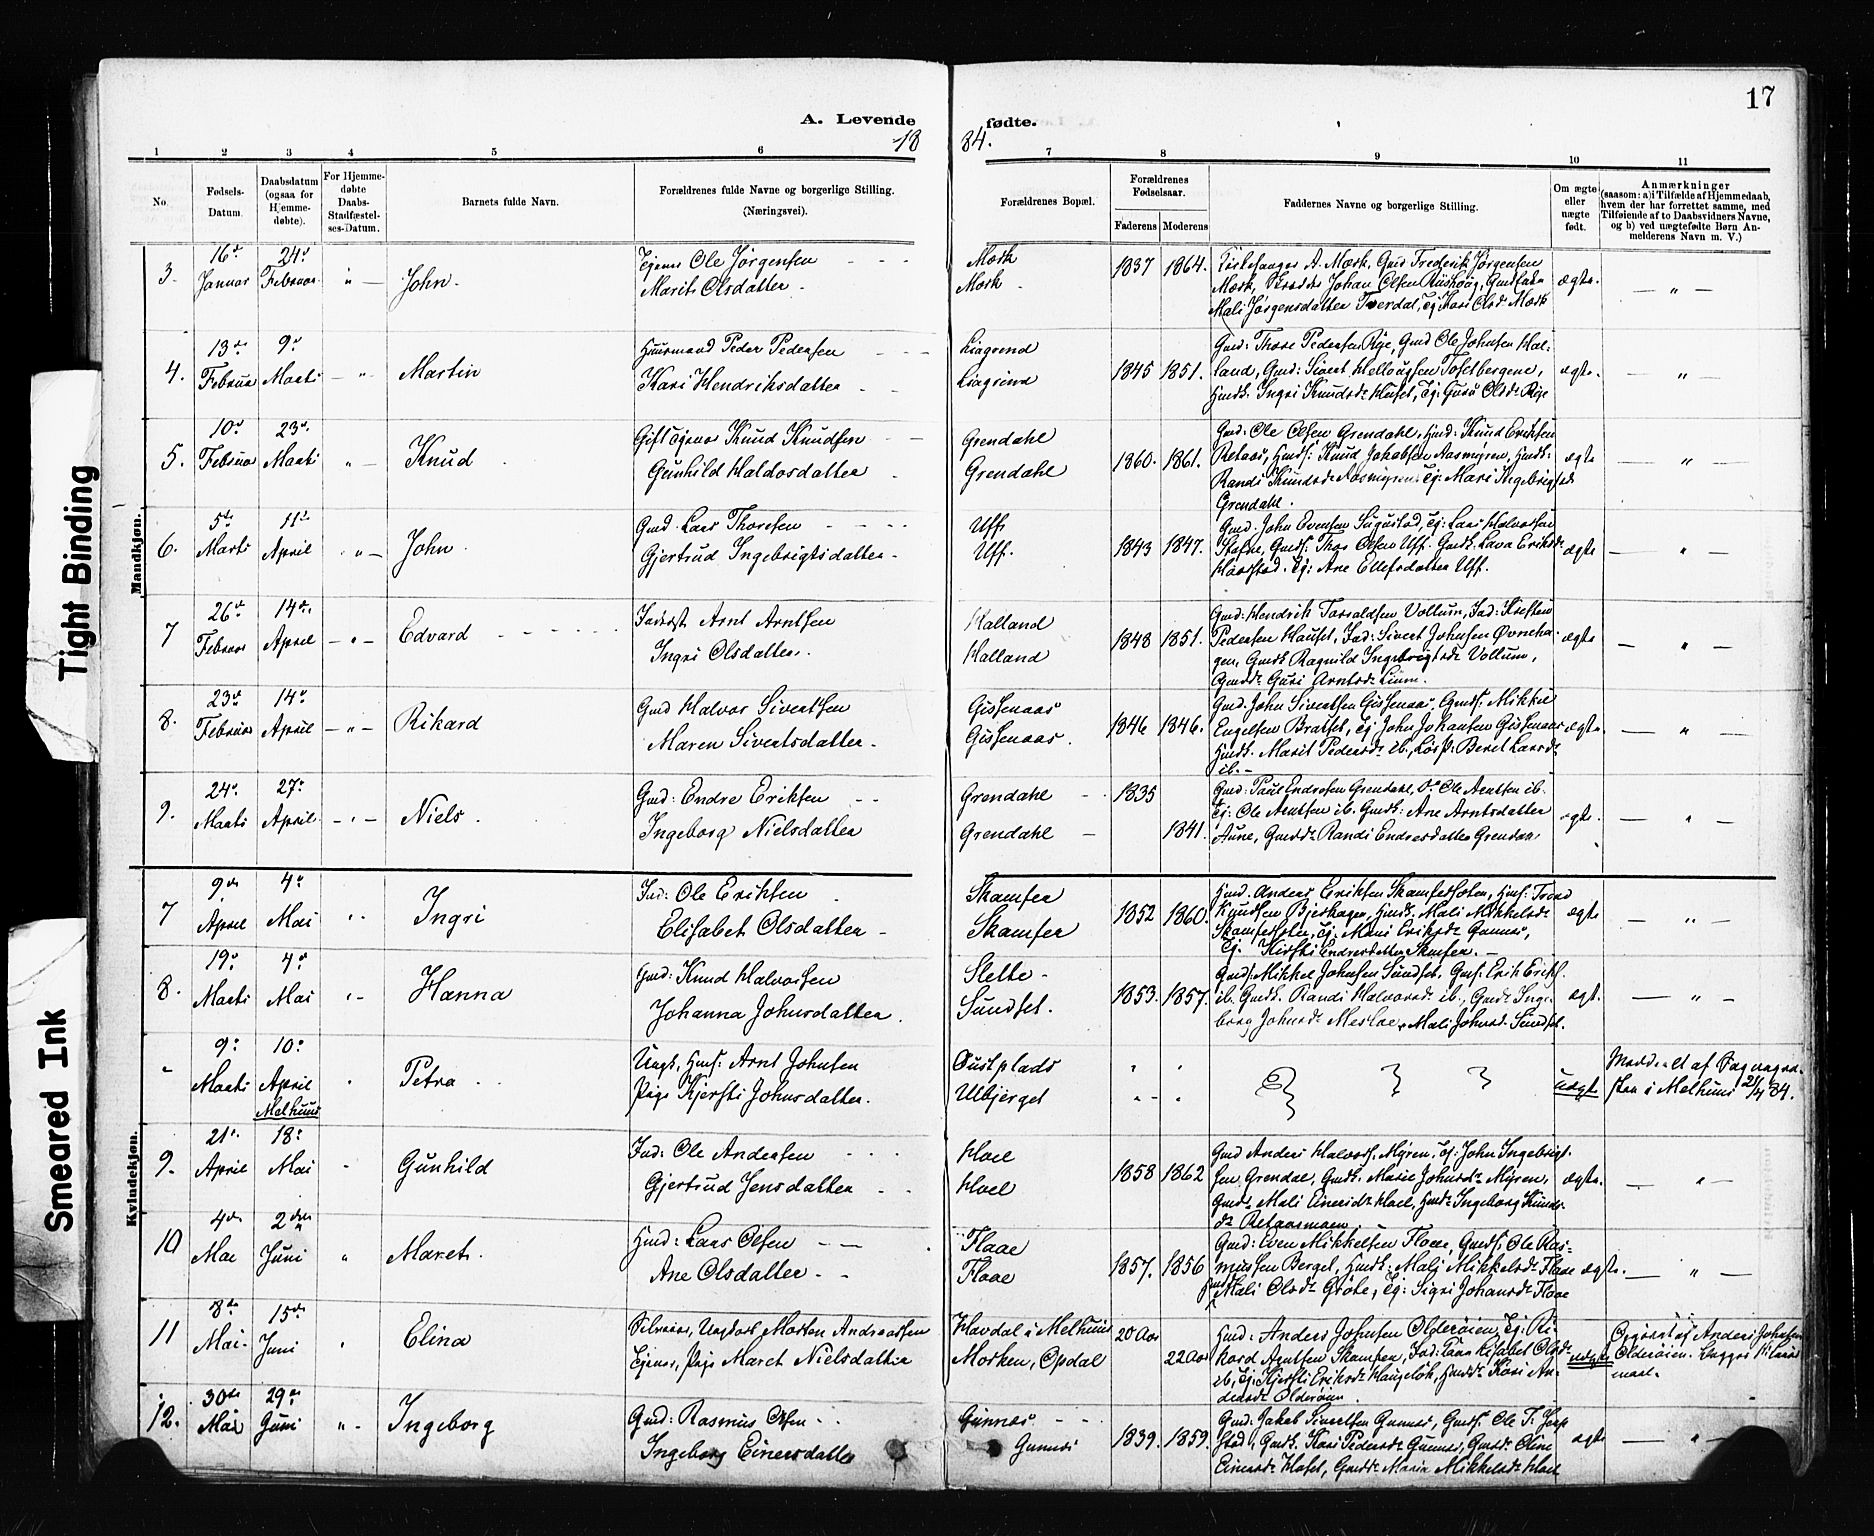 17
A. Levende fødte.
18 84.
1 2 3 4 5 6 7 8 9 10 11
No.
Fødsels-Datum.
Daabsdatum (ogsaa for Hjemme-døbte).
For Hjemme-døbte Daabs-Stadfæstel-ses-Datum.
Barnets fulde Navn.
Forældrenes fulde Navne og borgerlige Stilling. (Næringsvei).
Forældrenes Bopæl.
Forældrenes Fødselsaar.
Faderens Moderens
Faddernes Navne og borgerlige Stilling.
Om ægte eller uægte født.
Anmærkninger
(saasom: a) i Tilfælde af Hjemmedaab, hvem der har forrettet samme, med Tilføiende af to Daabsvidners Navne, og b) ved uægtefødte Børn Anmelderens Navn m. V.)
Tight Binding
Smeared Ink
Mandkjøn.
3. 16de Januar 24de Februar " — John.
Ejener Ole Jørgensen
Marit Olsdatter
Mærk
Mærk.
1837 1864.
Kirkesanger A. Mærk, Gmd Frederik Jørgensen
Mærk, Johan Olsen
Mali Jørgensdatter Tverdal, Ej: Kari Olsd. Mærk
ægte. — " —
4. 13de Februar 9de Marts — " Martin
Huusmand Peder Pedersen
Kari Hendriksdatter
Liagrend
Liagrend
1845 1851.
Gmd: Thore Pedersen Rije, Gmd Ole Johnsen Hal-
land, Gmd: Sivert
Ingri Knudsdr Huset, Ej: Guru Olsdr Rije
ægte. — " —
5. 10de Februar 23de Marts " — Knud
Gift Ejener Knud Knudsen
Gunhild Haldosdatter
Grendahl
Grendahl
1860. 1861.
Gmd: Ole Olsen Grendahl, Hmd: Knud Eriksen
Retaas, Gmds: Knud Jakobsen Aasmyren, Hmdk.
Randi Knudsdr Aasmyren, Ej: Mari Ingebrigtsd.
Grendahl.
ægte — " —
6. 5te Marts 11te April " — John.
Gmd. Lars Thoresen
Gjertrud Ingebrigtsdatter
Uff
Uff.
1843 1847.
Gmd. John Evensen , Ej: Lars Halvorsen
Gmds: Thor Olsen Uff. Gmdk. Eriksdr
Haarstad. Ej: Ane Ellefsdatter Uff.
ægte — " —
7 26de Februar 14de April — " — Edvard
Inderst Arnt Arntsen
Ingri Olsdatter.
Halland
Halland
1848 1851.
Gmd: Hendrik Vollum, Ind:
Pedersen , Ind: Sivert Johnsen
Gmdk Ragnild Ingebrigtsdr Vollum,
Guri Arntsdr
ægte — " —
8. 23de Februar 14de April — " — Rikard
Gmd Halvor Sivertsen
Maren Sivertsdatter.
Gissenaas
Gissenaas.
1846 1846.
Gmd. John Sivertsen Gissenaas, Gmds: Mikkel
Engelsen Bratset, Ej John Johansen Gissenaas
Marit Pedersdr ib., Beret Larsdr
ib. —
ægte. — " —
9. 24de Marts 27de April — " — Niels.
Gmd: Endre Eriksen
Ingeborg Nielsdatter
Grendahl
Grendahl
1835
1841.
Gmd: Paul Endresen Grendahl, Ole Arntsen ib.
Ej: Ole Arntsen ib. Gmdk: Ane Arntsdatter
Aune, Gmdd: Randi Endresdatter Grendahl
ægte. — " —
Kvindekjøn.
7 9de April 4de Mai " Ingri
Ind: Ole Eriksen
Elisabet Olsdatter
Skamfer
Skamfer
1852 1860.
Hmd. Anders Eriksen , Hmds: Trond
Knudsen Bjerkager, Hmdk. Mali Mikkelsdr
Ej. Mari Eriksdr Gunnes,
Ej. Kirsti Endresdatter Skamfer. —
ægte — " —
8. 19de Marts 4de Mai " — Hanna
Gmd: Knud Halvorsen
Johanna Johnsdatter.
Slette
Sundset.
1853. 1857.
Gmds: Mikkel Johnsen Sundset, Gmds: Erik Eriks.
ib. Gmdk. Randi Halvorsdr ib., Gmdd: Inge-
borg Johnsdr , Mali Johnsd. Sundset.
ægte. — " —
" 9de Marts 10de April Melhuus " Petra
Ungk. Hmds. Arnt Johnsen
Pige Kjersti Johnsdatter.
Oustplads
Ulbjerget
uægte
af Sognepræ-
sten i Melhuus 21/4 84.
9. 21de April 18de Mai " Gunhild
Ind: Ole Andersen
Gjertrud Jensdatter
Hoel
Hoel
1858 1862
Gmd Anders Halvors. Myren. Ej: John Ingebrigt-
sen Grendal, Gmdk. Marie Johnsdr Myren,
Mali Einersdr Hoel, Hmdd: Ingeborg Knuds-
dr Retaasmoen.
ægte. — " —
10 4de Mai 2den Juni " Maret.
Hmd: Lars Olsen
Ane Olsdatter
Flaae
Flaae
1857. 1856
Gmd: Even Mikkelsen Flaae, Gmds: Ole Ras-
mussen Berget, Hmdk: Mali Mikkelsdr Flaae
Mali Olsdr Grøte, Ej: Sigri Johansdr Flaae
ægte. — " —
11 8de Mai 15de Juni " Elina
Ungkarl Morten Andreassen
Ejener, Pige Maret Nielsdatter
Havdal i Melhuus
Morken, Opdal
20 Aar
22 Aar
Hmd: Anders Johnsen Olderøien, Ej: Ri-
kard Arntsen Skamfer, Ind: Elisabet Olsdr
ib, Ej: Kjersti Eriksdr , Hmdd: Kari An-
dersdr Olderøien.
uægte
af Anders Johnsen
Olderøien.
12. 30de Mai 29de Juni " Ingeborg
Gmd: Rasmus Olsen
Ingeborg Einersdatter
Gunnes
Gunnes
1839. 1859.
Gmd: Jakob Sivertsen Gunnes, Gmds. Ole T.
stad, Gmdk. Kari Pedersdr Gunnes, Gmdd: Eline
Einersdr Hoset, Gmdd: Maria Mikkelsdr Hoel
ægte — " —